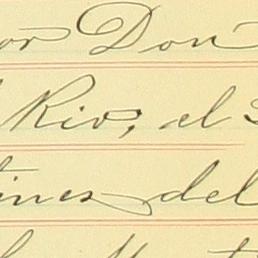 or Don
Rio, el
tines del